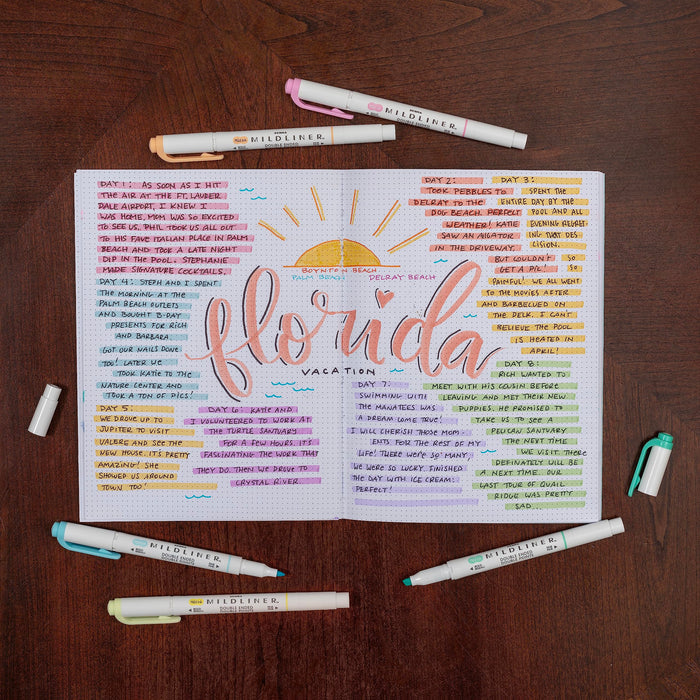 MILDLINER
DOUBLE ENDED
MILDLINER
DOUBLE ENDED
DAY 1: AS SOON AS I HIT
THE AIR AT THE FT. LAUDER
DALE AIRPORT, I KNEW I
WAS HOME. MOM WAS SO EXCITED
TO SEE US. PHIL TOOK US ALL OUT
TO HIS FAVE ITALIAN PLACE IN PALM
BEACH AND TOOK A LATE NIGHT
DIP IN THE POOL. STEPHANIE
MADE SIGNATURE COCKTAILS.
DAY 4: STEPH AND I SPENT
THE MORNING AT THE
PALM BEACH OUTLETS
AND BOUGHT B-DAY
PRESENTS FOR RICH
AND BARBARA.
GOT OUR NAILS DONE
TOO! LATER WE
TOOK KATIE TO THE
NATURE CENTER AND
TOOK A TON OF PICS!
DAY 5:
WE DROVE UP TO
JUPITER TO VISIT
VALERE AND SEE THE
NEW HOUSE. IT'S PRETTY
AMAZING! SHE
SHOWED US AROUND
TOWN TOO!
DAY 6: KATIE AND
I VOLUNTEERED TO WORK AT
THE TURTLE SANTUARY
FOR A FEW HOURS. IT'S
FASCINATING THE WORK THAT
THEY DO. THEN WE DROVE TO
CRYSTAL RIVER.
BOYNTON BEACH
PALM BEACH DELRAY BEACH
florida
VACATION
DAY 2:
TOOK PEBBLES TO
DELRAY TO THE
DOG BEACH. PERFECT
WEATHER! KATIE
SAW AN ALIGATOR
IN THE DRIVEWAY,
BUT COULDN'T
GET A PIC!
DAY 3:
SPENT THE
ENTIRE DAY BY THE
POOL AND ALL
EVENING REGRET-
ING THAT DES
CISION.
SO
SO
PAINFUL! WE ALL WENT
TO THE MOVIES AFTER
AND BARBECUED ON
THE DECK. I CAN'T
BELIEVE THE POOL
IS HEATED IN
APRIL!
DAY 7:
SWIMMING WITH
THE MANATEES WAS
A DREAM COME TRUE!
I WILL CHERISH THOSE MOM-
ENTS FOR THE REST OF MY
LIFE! THERE WERE SO MANY,
WE WERE SO LUCKY. FINISHED
THE DAY WITH ICE CREAM.
PERFECT!
DAY 8:
RICH WANTED TO
MEET WITH HIS COUSIN BEFORE
LEAVING AND MET THEIR NEW
PUPPIES. HE PROMISED TO
TAKE US TO SEE A
PELICAN SANTUARY
THE NEXT TIME
WE VISIT. THERE
DEFINATELY WILL BE
A NEXT TIME. OUR
LAST TOUR OF QUAIL
RIDGE WAS PRETTY
SAD...
MILDLINER
DOUBLE ENDED
MILDLINER
DOUBLE ENDED
MILDLINER
DOUBLE ENDED